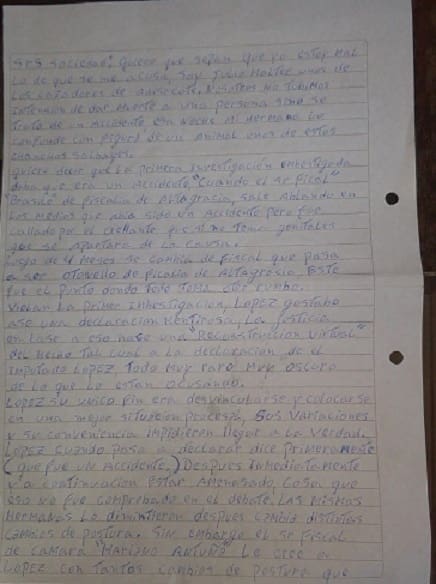 Srs sociedad: quiero que sepan que yo estoy mal
Lo de que se me acusa, soy uno de
Los cazadores de . Nosotros no tubimos
intension de dar muerte a una persona sino se
trato de un accidente esa noche al hermano Lo
confunde con figura de un animal unos de estos
chanchos salvajes.
quiero decir que La primera investigación
que era un accidente, "Cuando el sr Fiscal"
de fiscalia de Altagracia, sale Ablando en
Los medios que abia sido un Accidente pero fue
callado por el
que se apartara de La causa.
Luego de 4 meses se cambia de fiscal que pasa
a ser de Altagrasia, Este
fue el punto donde todo toma otro rumbo.
La primer Inbestigacion, Lopez
ase una declaracion mentirosa, La justicia
en base a eso hase una "Reconstruccion virtual"
del hecho Tal cual a La declaracion de el
imputado Lopez, todo muy raro muy oscuro
de Lo que Lo estan
Lopez su unico fin era desvincularse y colocarse
en una mejor situacion procesal, Sus Variaciones
y su conveniencia impidieron llegar a La Verdad.
Lopez cuando pasa a declarar dice primeramente
(que fue un accidente,) Despues inmediatamente
y a continuacion estar Amenasado, cosa que
eso no fue comprobado en el debate. Las mismas
Hermanas Lo desmintieron despues cambia distintos
cambios de postura. Sin embargo el sr fiscal
de camara "Mariano Antuña" Le cree a
Lopez con tantos cambios de postura que